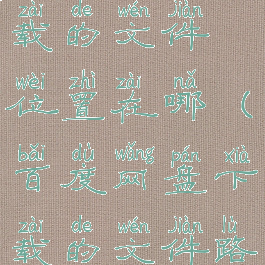 zài de wén jiàn
载的文件
wèi zhì zài nǎ
位置在哪（
bǎi dù wǎng pán xià
百度网盘下
zài de wén jiàn lù
载的文件路